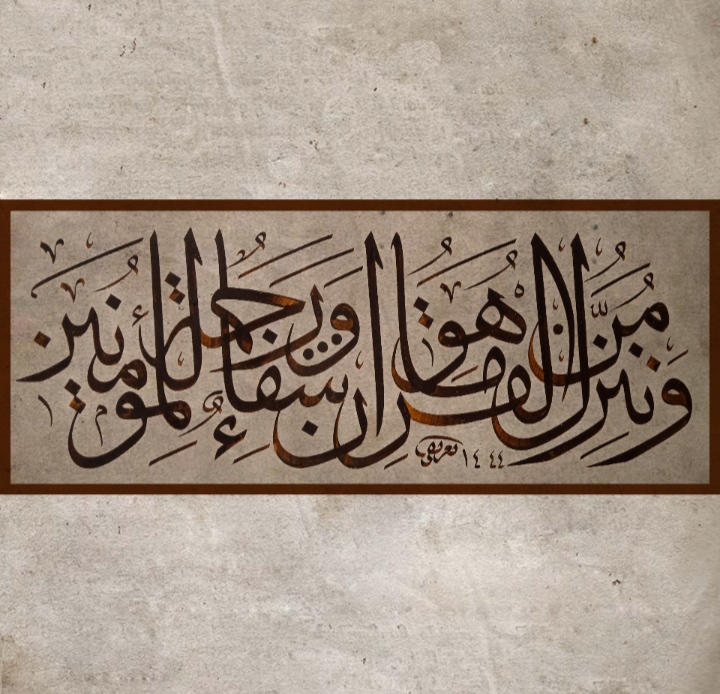 وَنُنَزِّلُ مِنَ القرآن ما هُوَ شِفَاءٌ وَرَحْمَةٌ لِلْمُؤْمِنِينَ
١٤٤٤